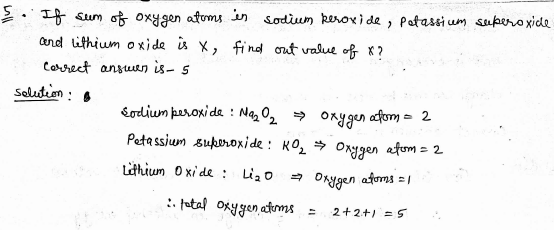 5. If sum of oxygen atoms in sodium peroxide, Potassium superoxide
and lithium oxide is X, find out value of X?
Correct answer is - 5
solution:
Sodium peroxide : Na₂O₂ ⇒ oxygen atom = 2
Potassium superoxide : KO₂ ⇒ Oxygen atom = 2
Lithium Oxide : Li₂O ⇒ Oxygen atoms = 1
∴ total oxygen atoms = 2+2+1 = 5